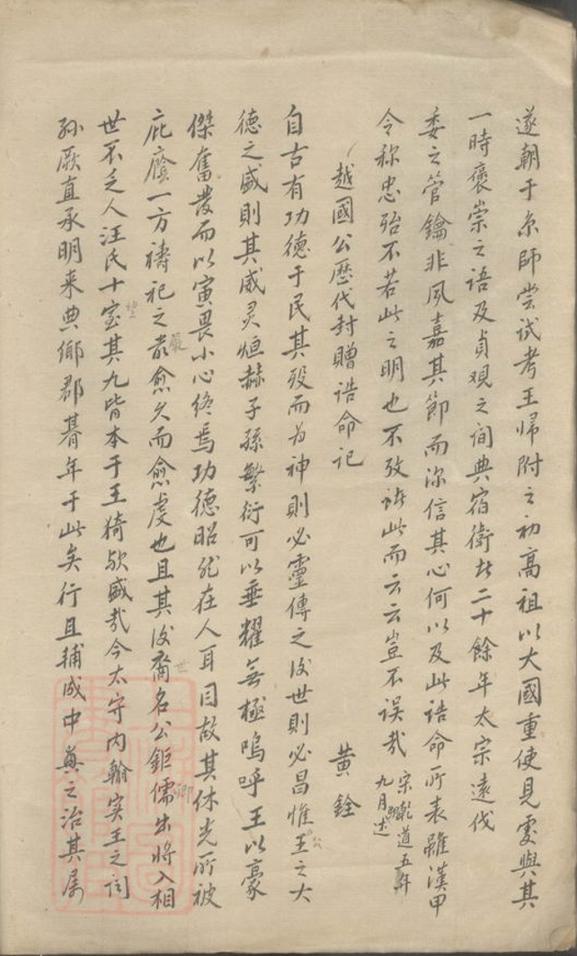 遂朝于京師嘗試考王歸附之初高祖以大國重使見處與其
一時褒崇之語及貞观之间典宿衛北二十餘年太宗遠伐
委之管鑰非夙嘉其節而深信其心何以及此誥命所表雖漢甲
令称忠殆不若此之明也不攷诸此而云云豈不误哉 宋乾道五年九月述
越國公歷代封贈诰命记 黄銓
自古有功德于民其殁而为神则必靈傳之後世则必昌惟王之大
德之盛则其威灵烜赫子孫繁衍可以垂耀無極嗚呼王以豪
傑奮發而以寅畏小心終焉功德昭然在人耳目故其休光所被
庇廕一方禱祀之嚴愈久而愈虔也且其後裔名公鉅儒出将入相
世不乏人汪氏十室其九皆本于王猗欤盛哉今太守内翰实王之闻
孙厥直承明来典鄉郡朞年于此矣行且輔成中興之治其属